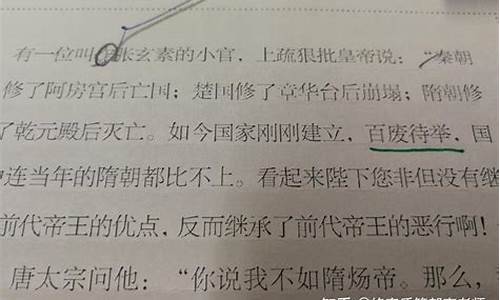 有一位叫张玄素的小官，上疏狠批皇帝说：“秦朝
修了阿房宫后亡国；楚国修了章华台后崩塌；隋朝修
了乾元殿后灭亡。如今国家刚刚建立，百废待举，国
连当年的隋朝都比不上。看起来陛下您非但没有继
前代帝王的优点，反而继承了前代帝王的恶行啊！
唐太宗问他：“你说我不如隋炀帝。那么，
知乎